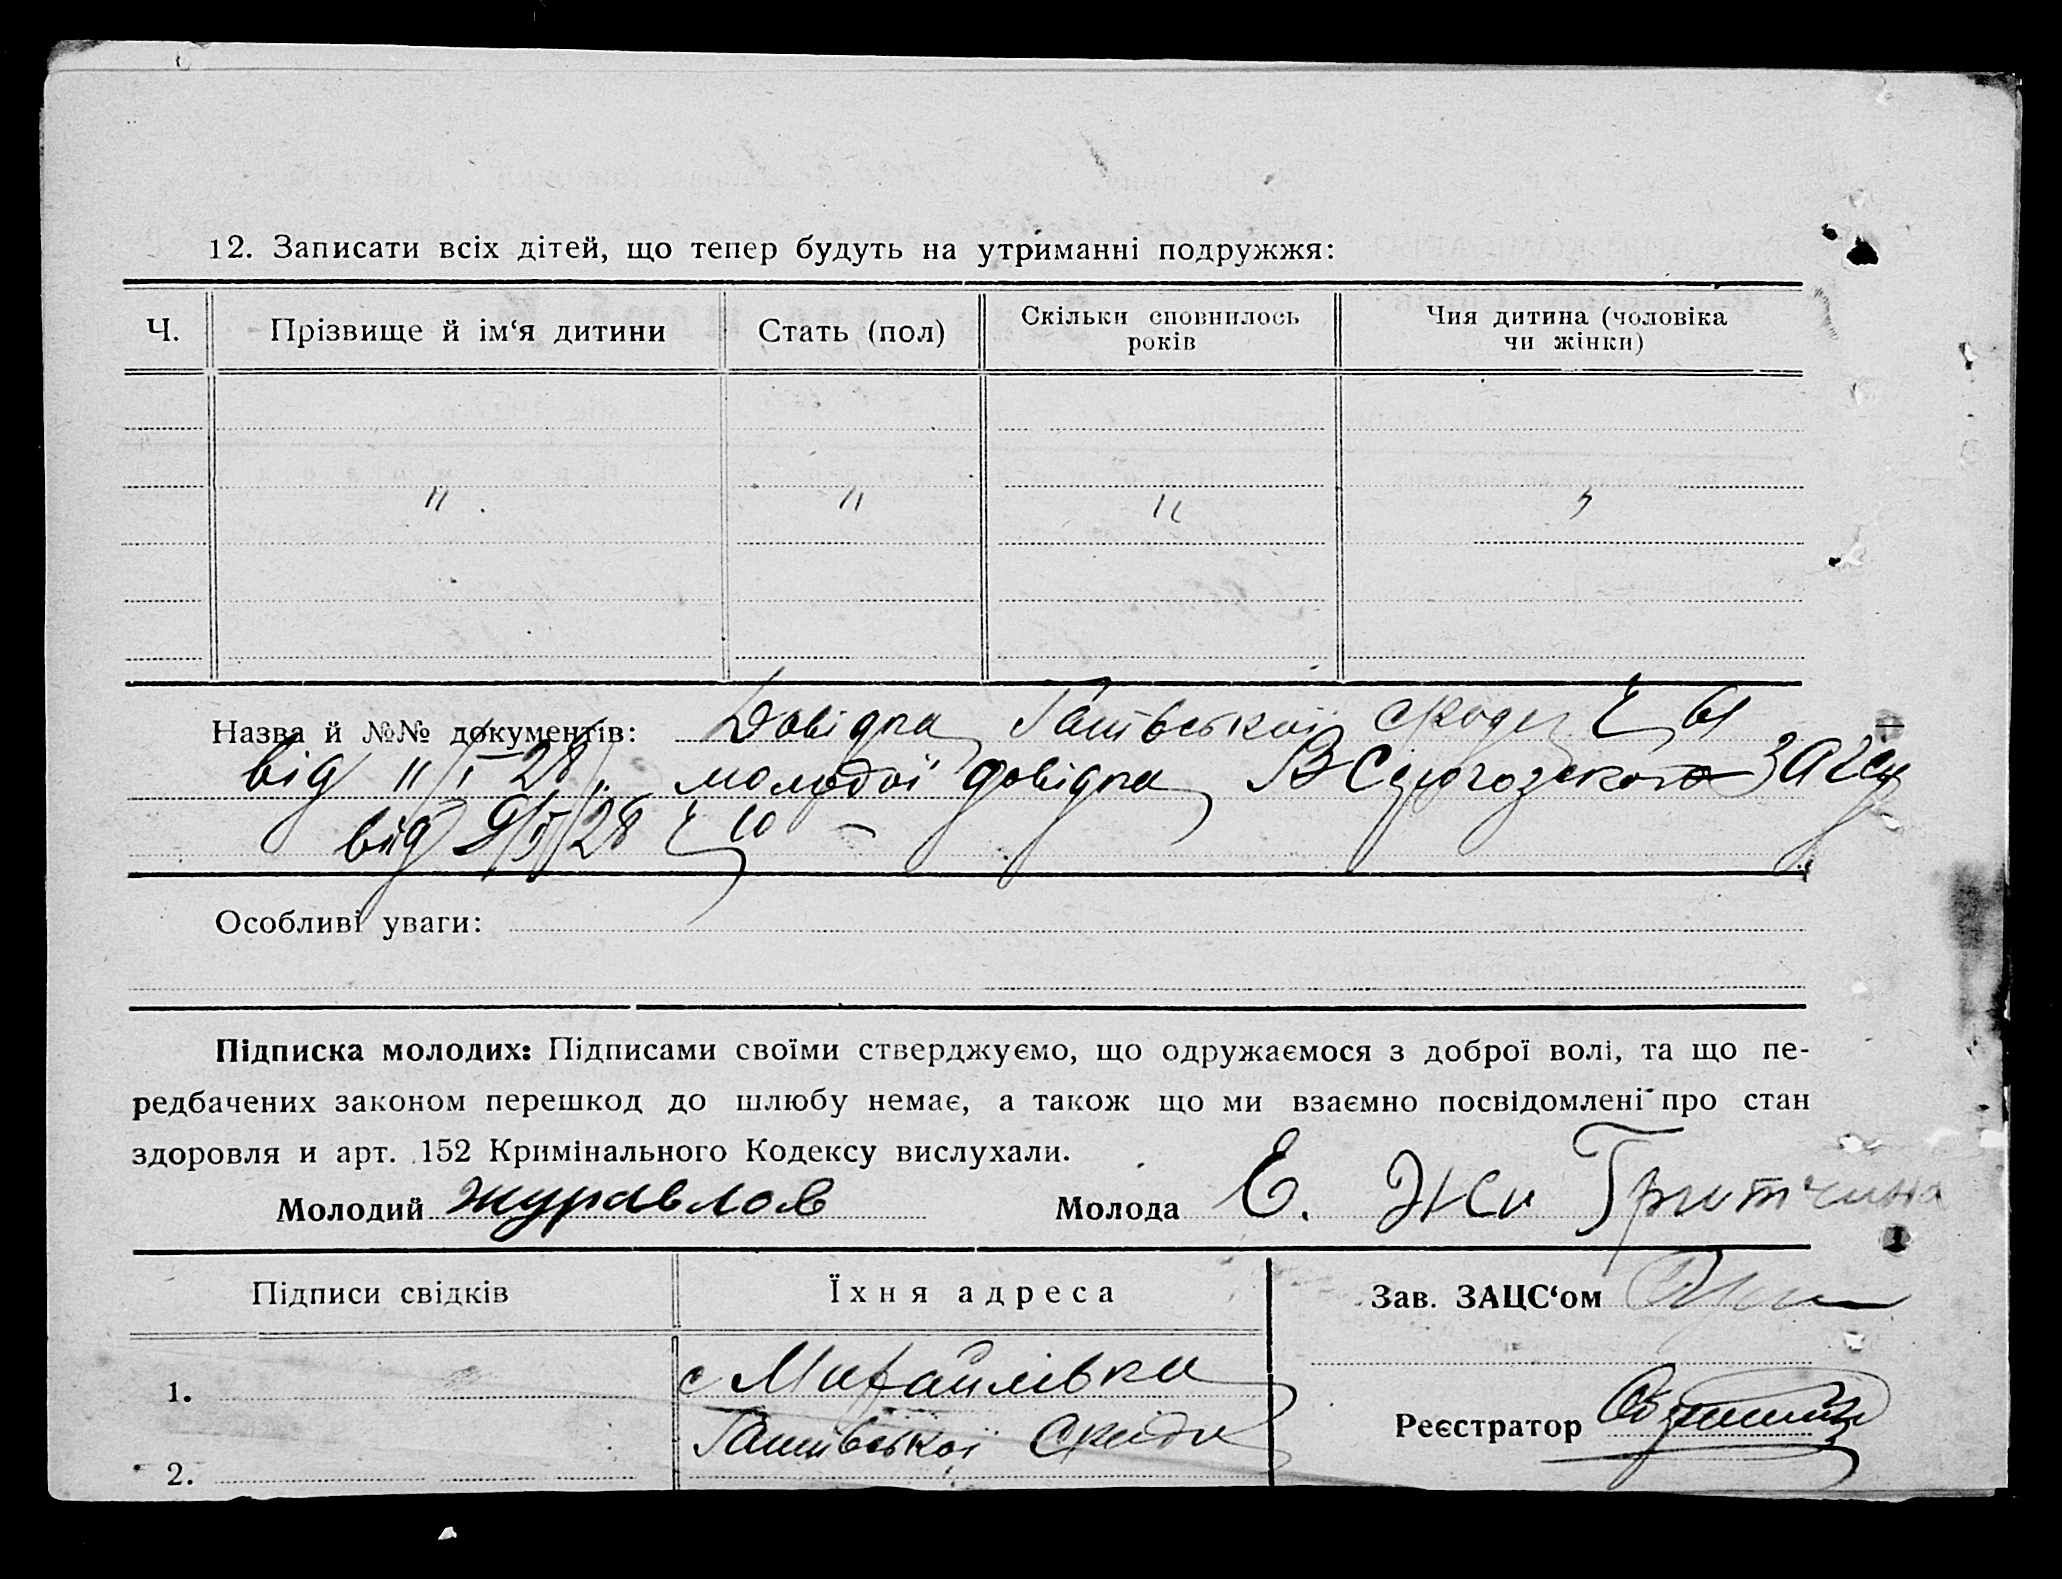 12. Записати всіх дітей, що тепер будуть на утриманні подружжя:
Ч. Прізвище й ім‘я дитини Стать (пол) Скільки сповнилось років Чия дитина (чоловіка чи жінки)
" " " "
Назва й №№ документів: Довідка Ч 61
від 11/I 28 молодої довідка В Сірогозского ЗАГСу
від 9/II/28 Ч 10 –
Особливі уваги:
Підписка молодих: Підписами своїми стверджуємо, що одружаємося з доброї волі, та що пе-
редбачених законом перешкод до шлюбу немає, а також що ми взаємно посвідомлені про стан
здоровля и арт. 152 Кримінального Кодексу вислухали.
Молодий Журавлов Молода Е.
Підписи свідків Їхня адреса Зав. ЗАЦС‘ом
1. с Михайлівка
Реєстратор
2.